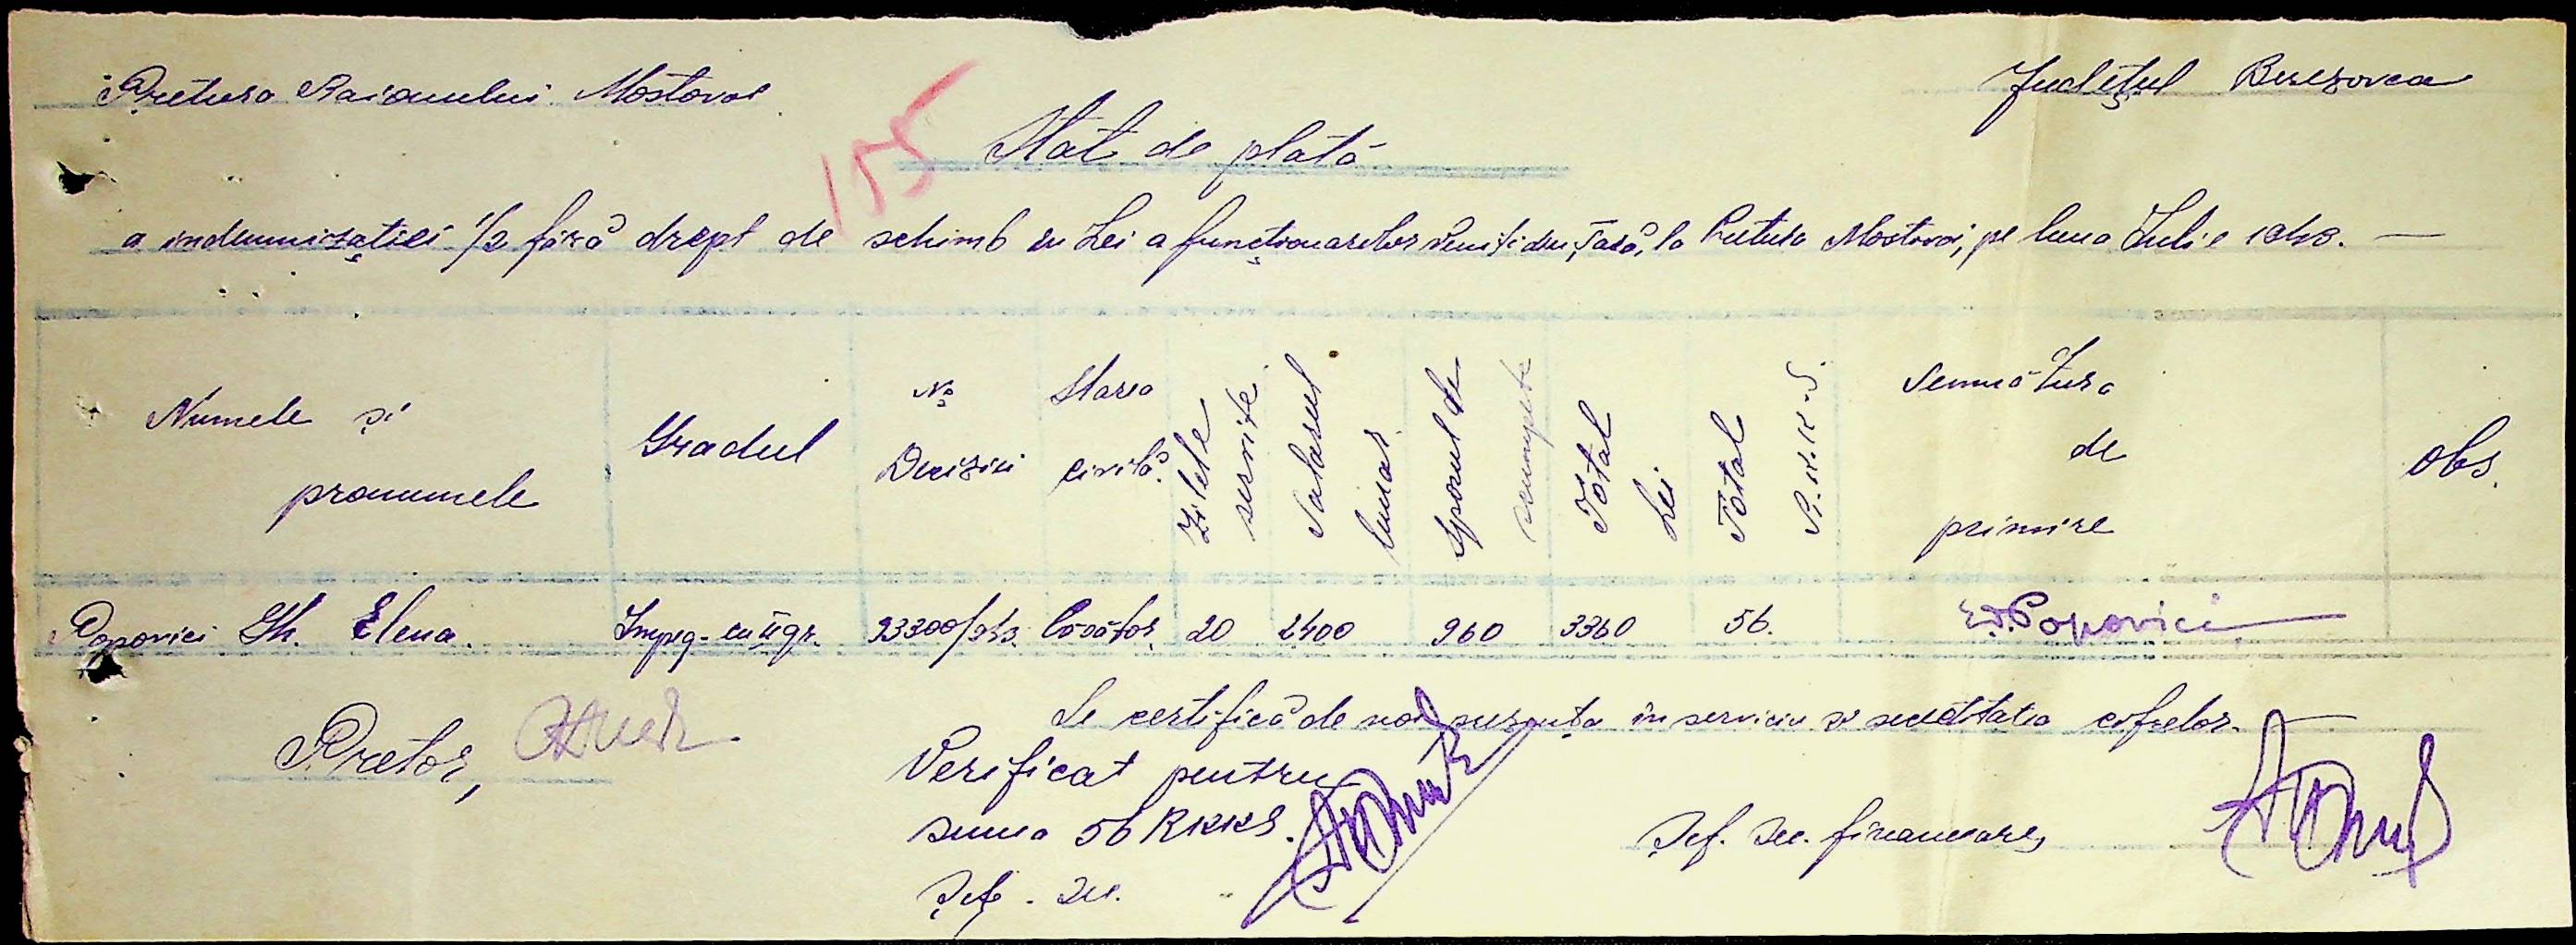 Pretura Raionului Mostovoi
Județul Berezovca
155
Stat de plată
a indemnizației 1/2 fără drept de schimb în Lei a funcționarilor veniți din Țară, la Pretura Mostovoi, pe luna Iulie 1943. —
Numele și pronumele
Gradul
No Deciziei
Starea civilă
Zilele servite
Salarul lunar
Sporul de scumpete
Total Lei
Total R.K.K.S.
Semnătura de primire
Obs.
Popovici Gh. Elena. Impieg. cu II gr. căsător. 20 2400 960 3360 56. Popovici
Se certifică de noi prezența în serviciu și exactitatea cifrelor.
Pretor,
Verificat pentru
suma 56 RKKS.
Șef. Sec.
Șef. Sec. financiare,